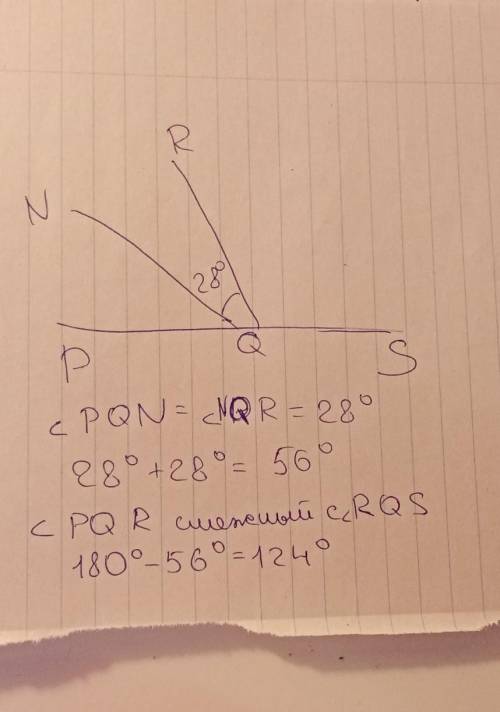 R
N
28°
P Q S
∠PQN = ∠NQR = 28°
28° + 28° = 56°
∠PQR смежный с ∠RQS
180° - 56° = 124°